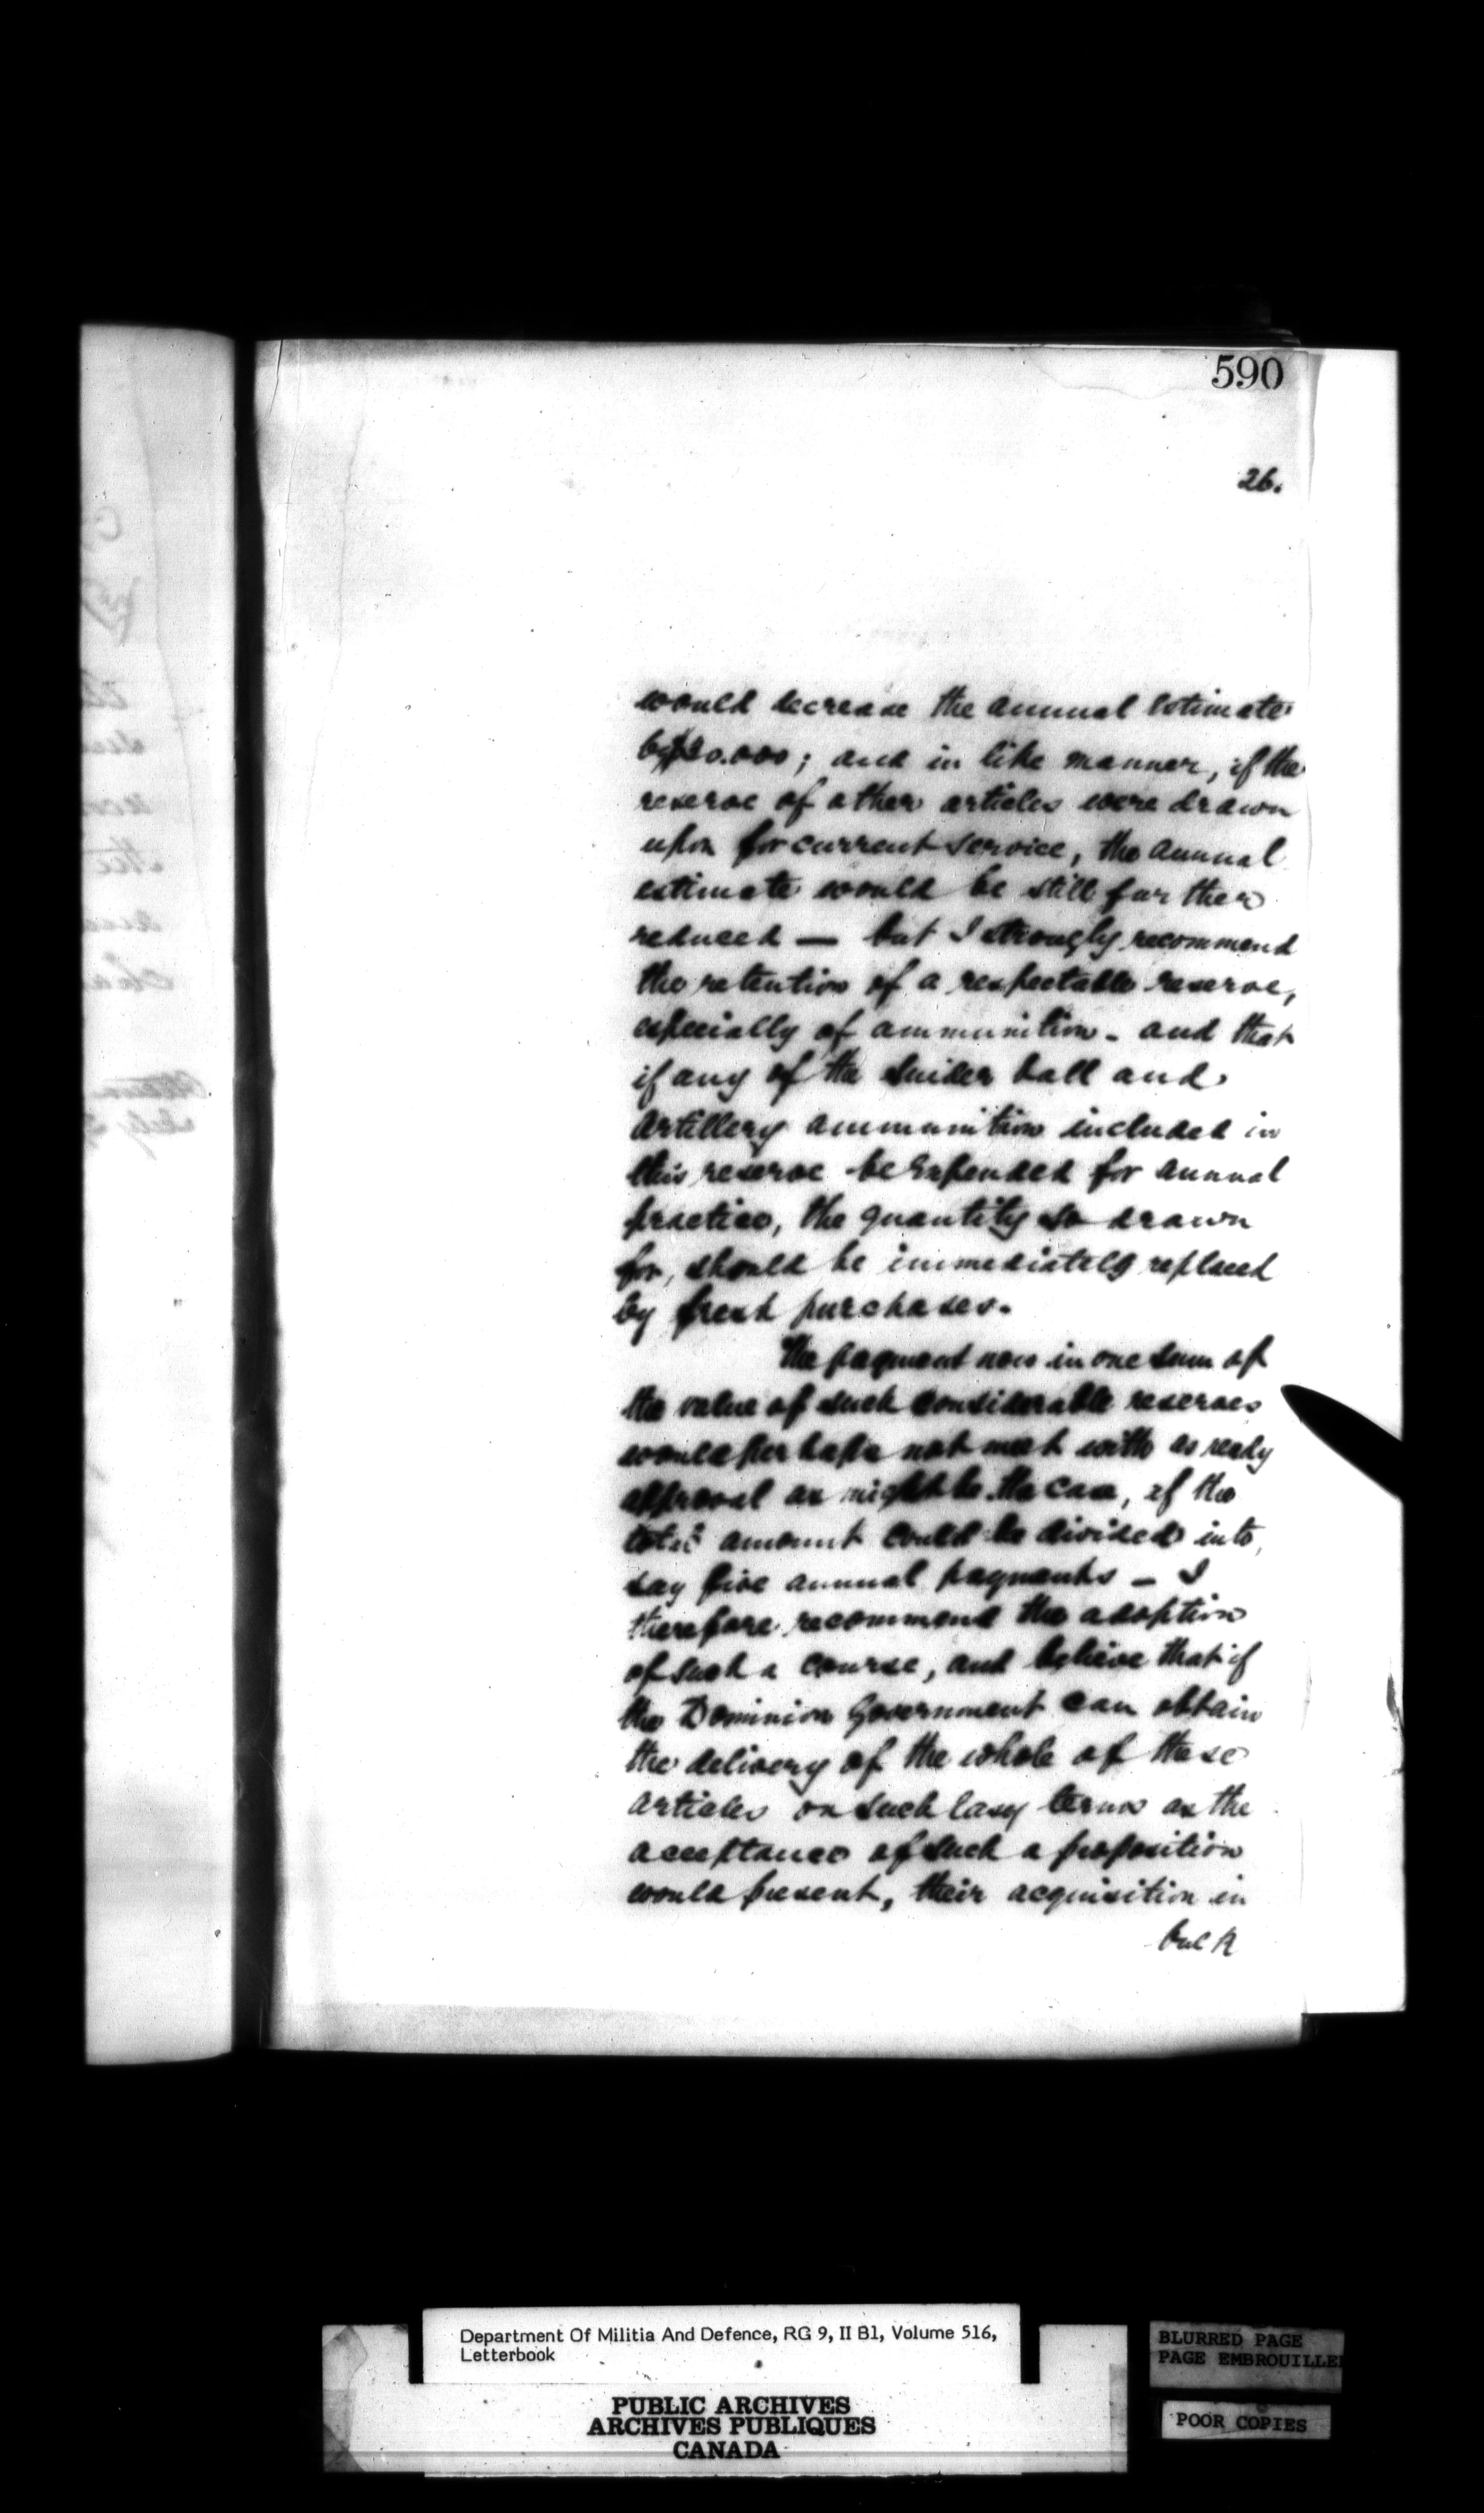 590
26.
would decrease the annual Estimate
by $20.000; and in like manner, if the
reserve of other articles were drawn
upon for current service, the annual
estimate would be still further
reduced — but I strongly recommend
the retention of a respectable reserve,
especially of ammunition - and that
if any of the Snider ball and
Artillery ammunition included in
this reserve be expended for annual
practice, the quantity so drawn
for, should be immediately replaced
by fresh purchases.
The payment now in one sum of
the value of such considerable reserves
would perhaps not meet with as ready
approval as might be the case, if the
total amount could be divided into,
say five annual payments — I
therefore recommend the adoption
of such a course, and believe that if
the Dominion Government can obtain
the delivery of the whole of these
articles on such easy terms as the
acceptance of such a proposition
would present, their acquisition in
bulk
Department Of Militia And Defence, RG 9, II B1, Volume 516,
Letterbook
PUBLIC ARCHIVES
ARCHIVES PUBLIQUES
CANADA
BLURRED PAGE
PAGE EMBROUILLEE
POOR COPIES